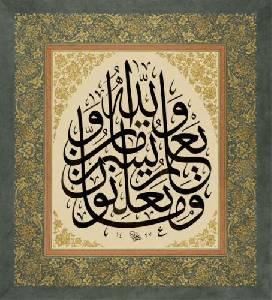 والله يعلم ما تسرون وما تعلنون